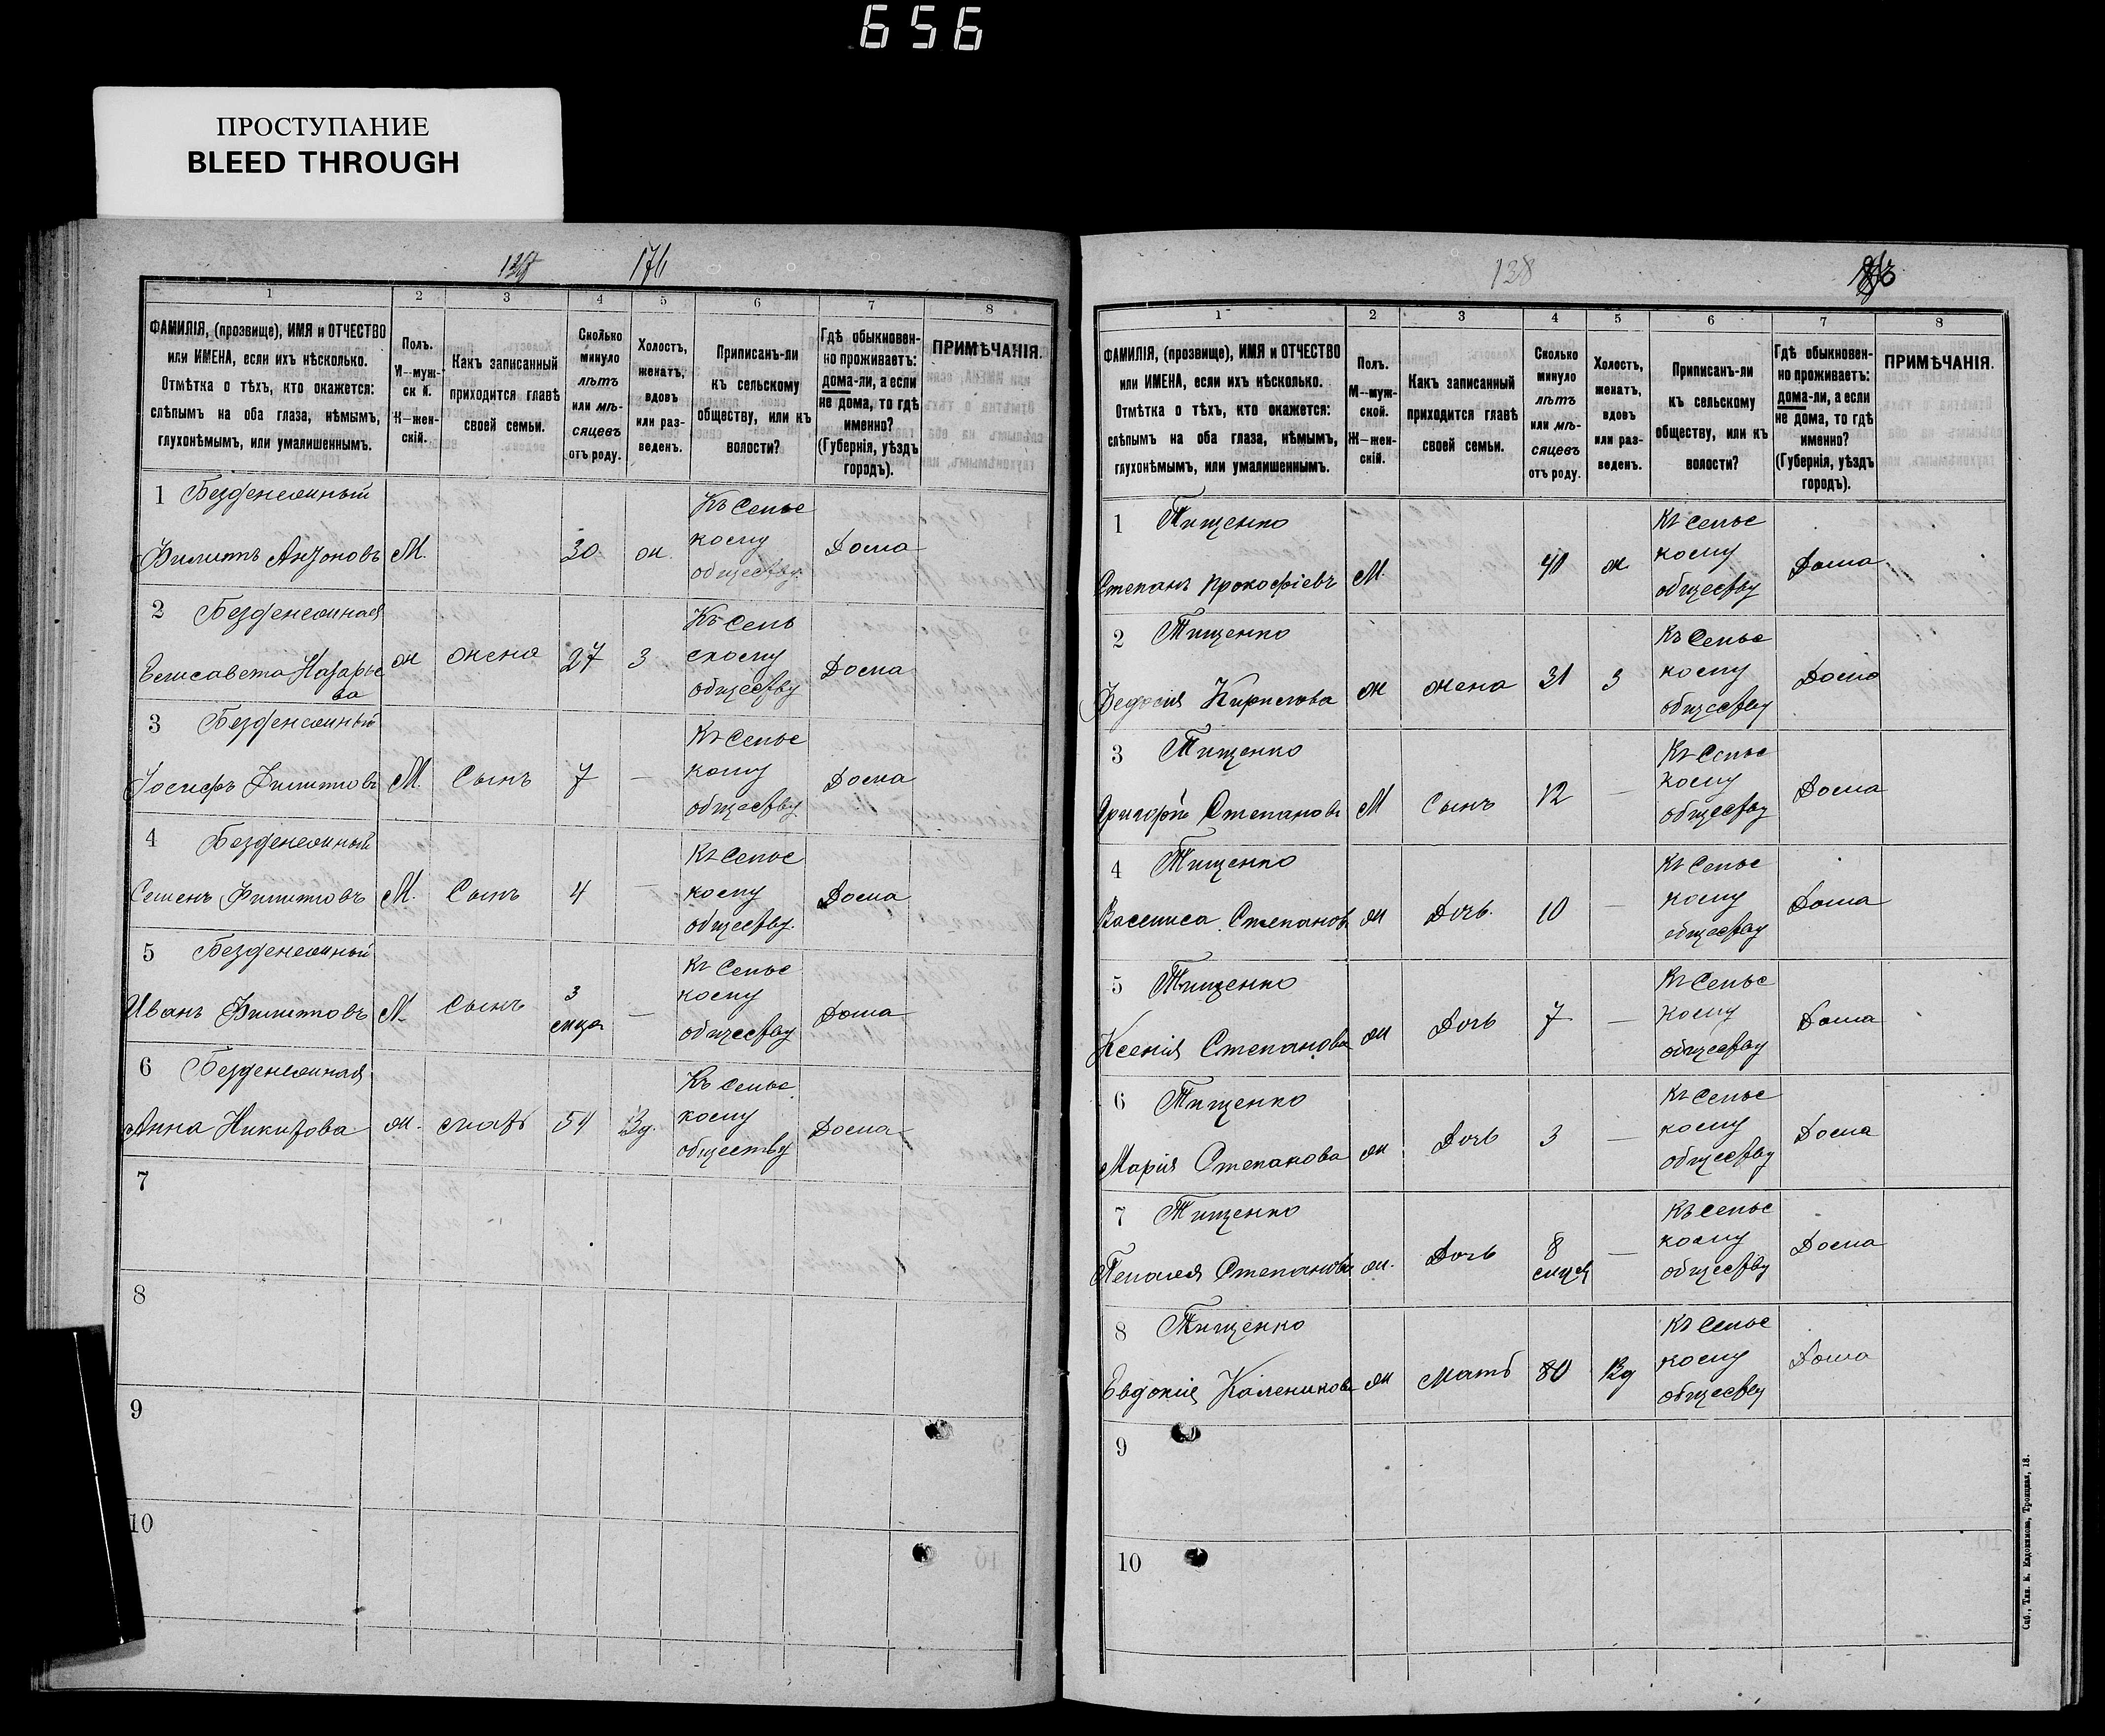 656
ПРОСТУПАНИЕ
BLEED THROUGH
176
1
2
3
4
5
6
7
8
ФАМИЛІЯ, (прозвище), ИМЯ и ОТЧЕСТВО
или ИМЕНА, если ихъ нѣсколько.
Отмѣтка о тѣхъ, кто окажется:
слѣпымъ на оба глаза, нѣмымъ,
глухонѣмымъ, или умалишеннымъ.
Полъ.
М—муж-
ск й.
К—жен-
скій.
Какъ записанный
приходится главѣ
своей семьи.
Сколько
минуло
лѣтъ
или мѣ-
сяцевъ
отъ роду.
Холостъ,
женатъ,
вдовъ
или раз-
веденъ.
Приписанъ-ли
къ сельскому
обществу, или къ
волости?
Гдѣ обыкновен-
но проживаетъ:
дома-ли, а если
не дома, то гдѣ
именно?
(Губернія, уѣздъ
городъ).
ПРИМѢЧАНІЯ.
1 Безденежный
Филиппъ Антоновъ М. 30 ж.
Къ Селье
кому
обществу.
Дома
2 Безденежная
Елисавета Назарье
ва
ж жена 27 З
Къ Сель
скому
обществу
Дома
3 Безденежный
Іосифъ Филиповъ М. Сынъ 7 —
Къ Селье
кому
обществу.
Дома
4 Безденежный
Семенъ Филиповъ М. Сынъ 4 —
Къ Селье
кому
обществу.
Дома
5 Безденежный
Иванъ Филиповъ М Сынъ 3 —
Къ Селье
кому
обществу
Дома
6 Безденежная
Анна Никифрова ж. мать 54 Вд.
Къ Селье
кому
обществу
Дома
7
8
9
10
138
1
2
3
4
5
6
7
8
ФАМИЛІЯ, (прозвище), ИМЯ и ОТЧЕСТВО
или ИМЕНА, если ихъ нѣсколько.
Отмѣтка о тѣхъ, кто окажется:
слѣпымъ на оба глаза, нѣмымъ,
глухонѣмымъ, или умалишеннымъ.
Полъ.
М—муж-
ской.
Ж—жен-
скій.
Какъ записанный
приходится главѣ
своей семьи.
Сколько
минуло
лѣтъ
или мѣ-
сяцевъ
отъ роду.
Холостъ,
женатъ,
вдовъ
или раз-
веденъ.
Приписанъ-ли
къ сельскому
обществу, или къ
волости?
Гдѣ обыкновен-
но проживаетъ:
дома-ли, а если
не дома, то гдѣ
именно?
(Губернія, уѣздъ
городъ).
ПРИМѢЧАНІЯ.
1 Тищенко
Степанъ Прокофіевъ М. ж
Къ Селье
кому
обществу
Дома
2 Тищенко
Федосія Кирилова ж жена 31 З
Къ Селье
кому
обществу
Дома
3 Тищенко
Григорій Степановъ М Сынъ 12 —
Къ Селье
кому
обществу
Дома
4 Тищенко
Василиса Степанов ж Дочь. 10 —
Къ Селье
кому
обществу
Дома
5 Тищенко
Ксенія Степанова ж Дочь 7 —
Къ Селье
кому
обществу
Дома
6 Тищенко
Марія Степанова ж Дочь 3 —
Къ Селье
кому
обществу
Дома
7 Тищенко
Пелагея Степанова ж. Дочь 8 —
Къ Селье
кому
обществу
Дома
8 Тищенко
Евдокия Каленикова ж Мать 80 Вд
Къ Селье
кому
обществу
Дома
9
10
Спб., Тип. Е. Евдокимова, Троицкая, 18.